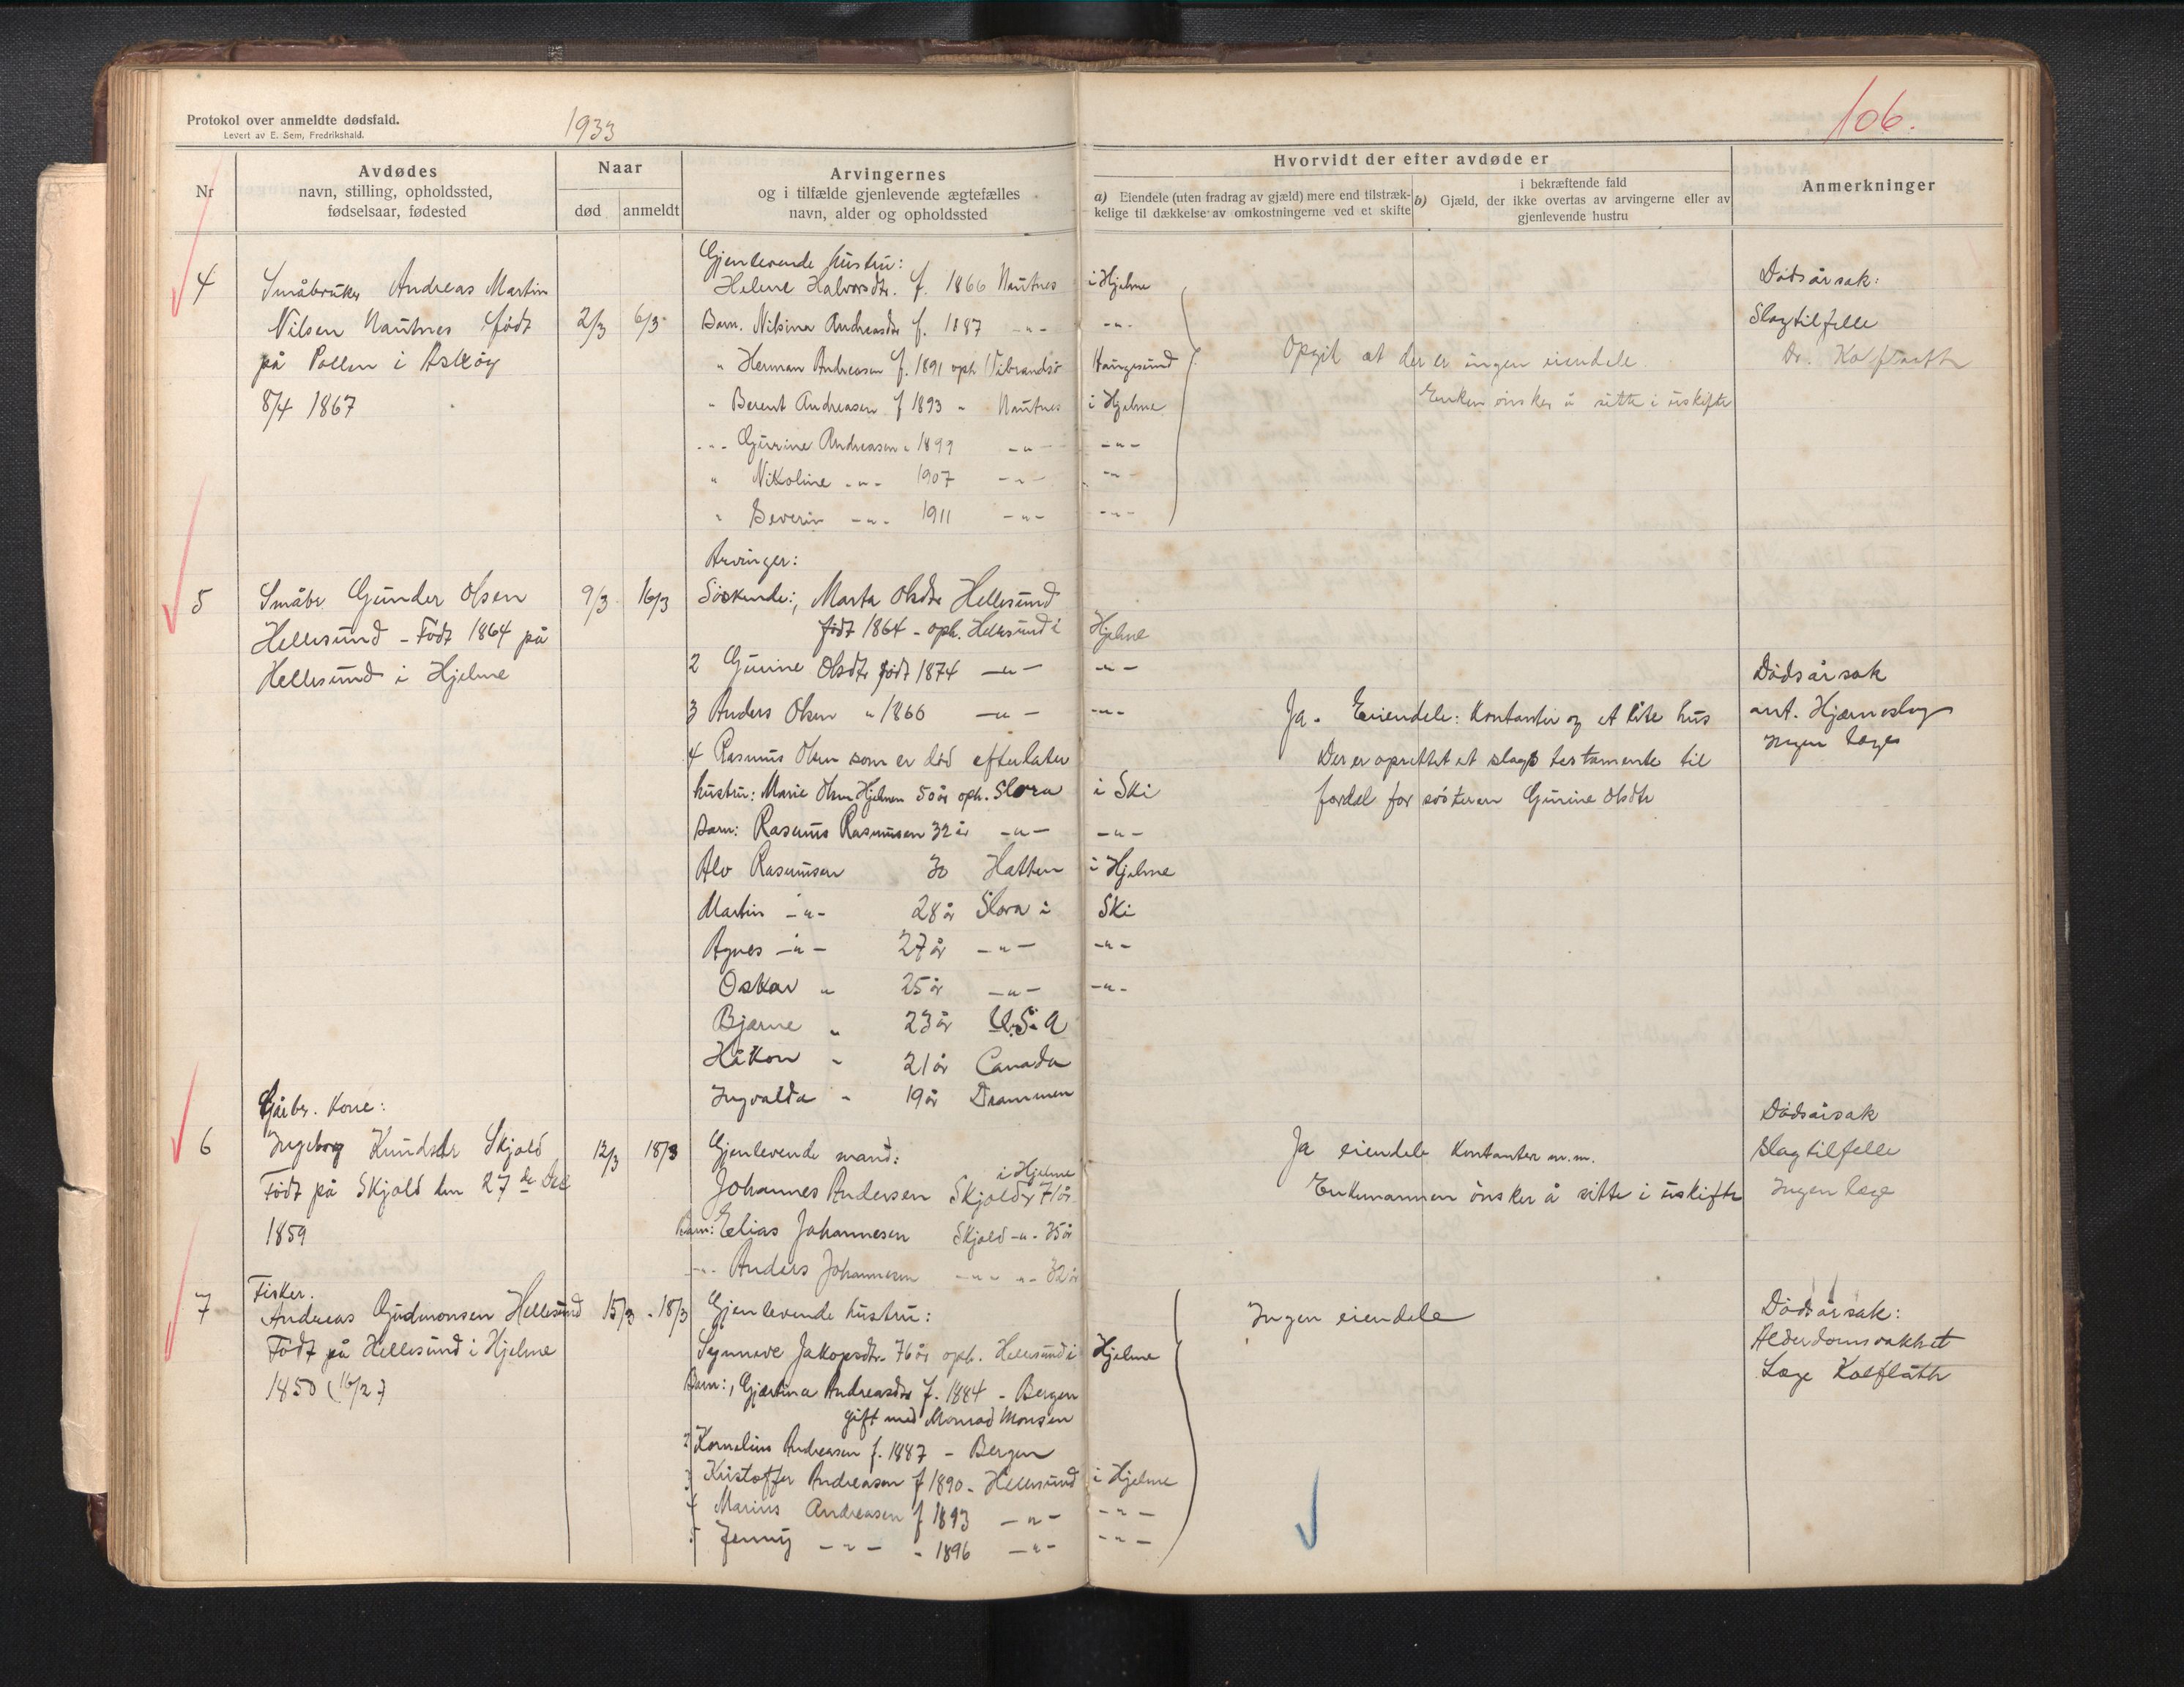 Protokol over anmeldte dødsfald.
Levert av E. Sem, Fredrikshald.
1933
106.
Nr
Avdødes
navn, stilling, opholdssted,
fødselsaar, fødested
Naar
død
anmeldt
Arvingernes
og i tilfælde gjenlevende ægtefælles
navn, alder og opholdssted
Hvorvidt der efter avdøde er
a) Eiendele (uten fradrag av gjæld) mere end tilstræk-
kelige til dækkelse av omkostningerne ved et skifte
i bekræftende fald
b) Gjæld, der ikke overtas av arvingerne eller av
gjenlevende hustru
Anmerkninger
4
Småbruker Andreas Martin
Nilsen Nautnes født
på Pollen i Askøy
8/4 1867
2/3
6/3
Gjenlevende hustru:
Helene Halvorsdtr. f. 1866 Nautnes i Hjelme
Barn. Nilsina Andreasdtr f. 1887 -"- -"-
" Herman Andreasen f. 1891 oph Haugesund
" Berent Andreasen f 1893 " Nautnes i Hjelme
-"- Gurine Andreasen " 1899 -"- -"-
" Nikoline -"- 1907 -"- -"-
" Severin -"- 1911 -"- -"-
Opgit at der er ingen eiendele
Enken ønsker å sitte i uskifte
Dødsårsak:
Slagtilfelle
Dr. Kalflath
5
Småbr Gunder Olsen
Hellesund - Født 1864 på
Hellesund i Hjelme
9/3
16/3
Arvinger:
Søskende:, Marta Olsdtr Hellesund
født 1864 - oph. Hellesund i Hjelme
2 Gurine Olsdtr født 1874 -"- -"-
3 Anders Olsen " 1866 -"- -"-
4 Rasmus Olsen som er død efterlater
hustru: Marie Olsen Hjelmen 50 år oph. Slora i Ski
Barn: Rasmus Rasmussen 32 år -"- -"-
Alv Rasmussen 30 Hatten i Hjelme
Martin -"- 28 år Slora i Ski
Agnes -"- 27 år -"- -"-
Oskar " 25 år -"- -"-
Bjarne " 23 år U.S.A
Håkon " 21 år Canada
Ingvalda " 19 år Drammen
Ja. Eiendele: Kontanter og et lite hus
Der er oprettet et slags testamente til
fordel for søsteren Gurine Olsdtr
Dødsårsak
ant. Hjerneslag
Ingen læge
6
Gårbr. Kone:
Ingeborg Knudsdtr Skjold
Født på Skjold den 27 de Des
1859
12/3
18/3
Gjenlevende mand:
i Hjelme
Johannes Andersen Skjold 71 år
Barn: Elias Johannesen Skjold -"- 35 år
-"- Anders Johannesen -"- "- 32 år
Ja eiendele Kontanter m.m.
Enkemannen ønsker å sitte i uskifte
Dødsårsak
Slagtilfelle
Ingen læge
7
Fisker.
Andreas Gudmonsen Hellesund
Født på Hellesund i Hjelme
1850 (16/2)
15/3
18/3
Gjenlevende hustru:
Synneve Jakopsdtr. 76 år oph. Hellesund i Hjelme
Barn:, Gjertina Andreasdtr f. 1884 - Bergen
gift med Monrad Monsen
2 Kornelius Andreasen f. 1887 - Bergen
3 Kristoffer Andreasen f 1890 - Hellesund i Hjelme
4 Marius Andreasen f 1893 -"- -"-
5 Jenny -"- " 1896 -"- -"-
Ingen eiendele
Dødsårsak:
Alderdomssvakhet
Læge Kalflath